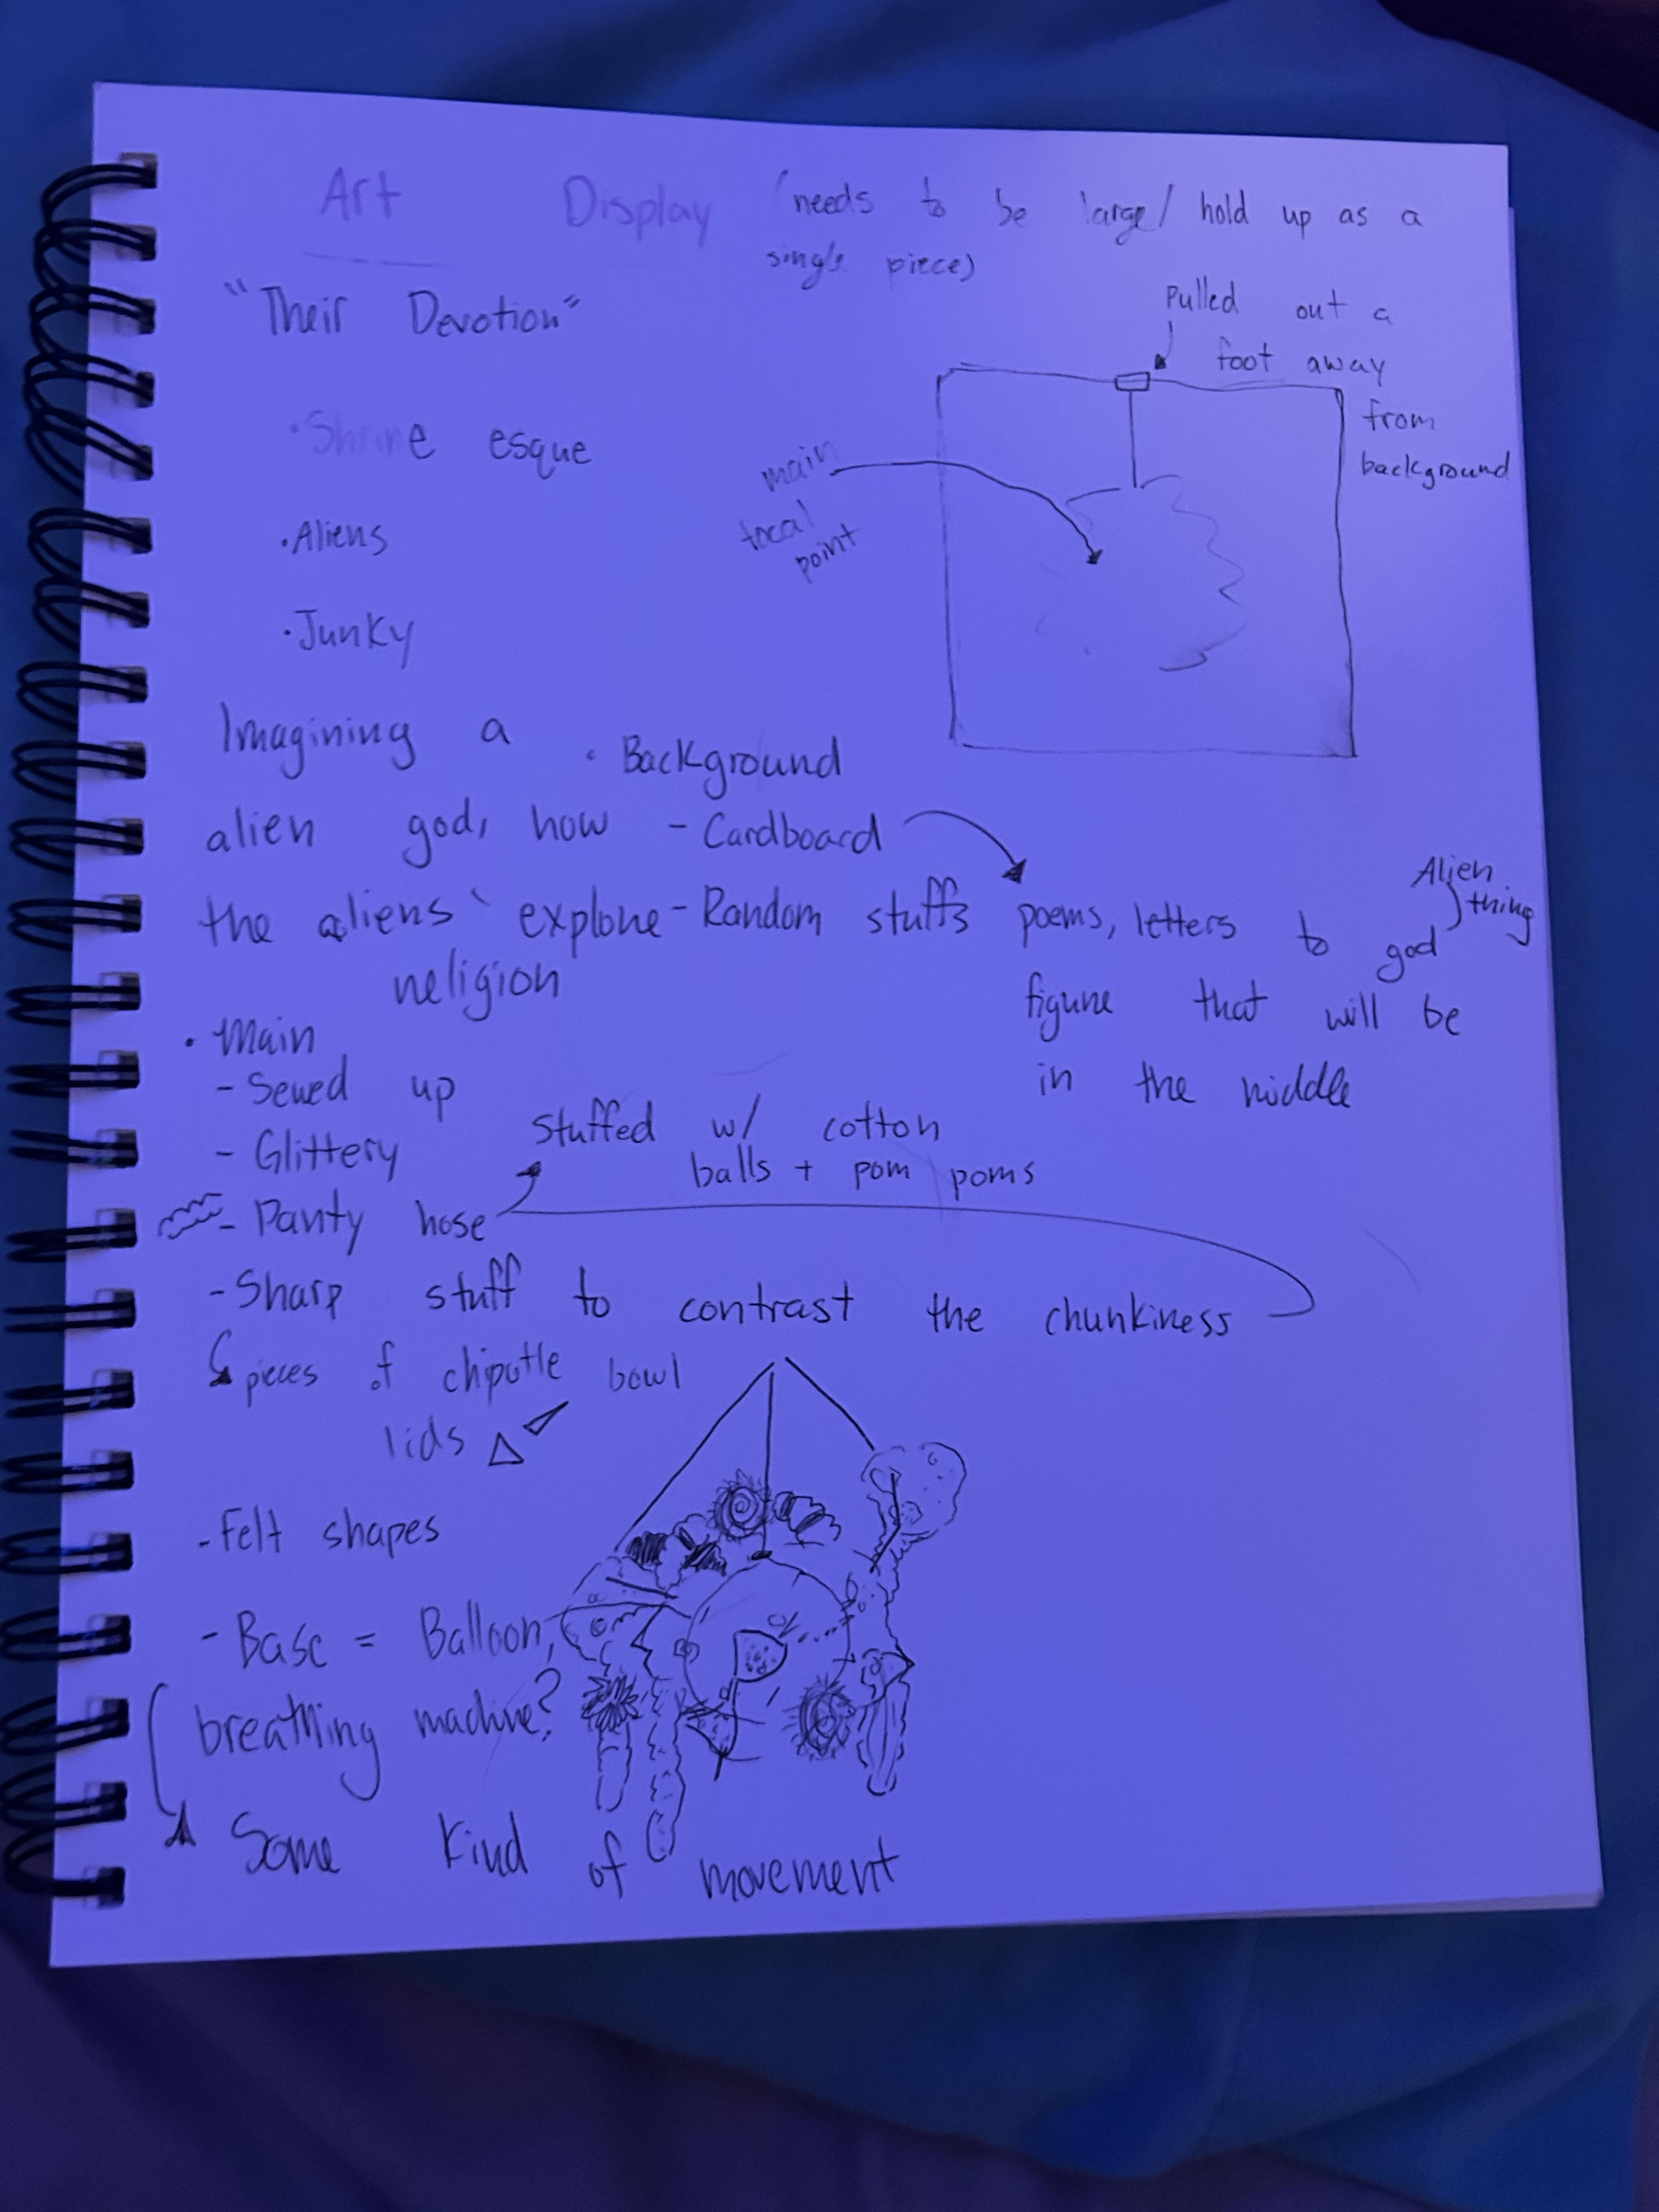 Art Display (needs to be large/ hold up as a
single piece)
"Their Devotion"
Pulled out a
foot away
from
background
main
focal
point
•Shrine esque
•Aliens
•Junky
Imagining a
alien god, how
the aliens explore
religion
• Background
- Cardboard
- Random stuffs poems, letters to god
Alien
thing
figure that will be
in the middle
• Main
- Sewed up
- Glittery
- Panty hose
Stuffed w/ cotton
balls + pom poms
- Sharp stuff to contrast the chunkiness
pieces of chipotle bowl
lids
- Felt shapes
- Base = Balloon,
breathing machine?
Some kind of movement